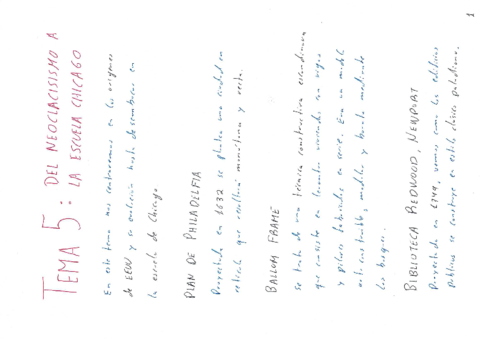 TEMA 5: DEL NEOCLACISISMO A
LA ESCUELA CHICAGO
En este tema nos centraremos en los orígenes
de EEUU y su evolución hasta desembocar en
la escuela de Chicago
PLAN DE PHILADELFIA
Proyectada en 1632 se plantea una ciudad en
retícula que resultará monótona y recta.
BALLOM FRAME
Se trata de una técnica constructiva escandinava
que consiste en levantar viviendas con vigas
y pilares fabricados en serie. Era un model
autoconstruible, modular y barato mediante
los bosques.
BIBLIOTECA REDWOOD, NEWPORT
Proyectada en 1749, vemos como los edificios
públicos se construyen en estilo clásico paladiano.
1